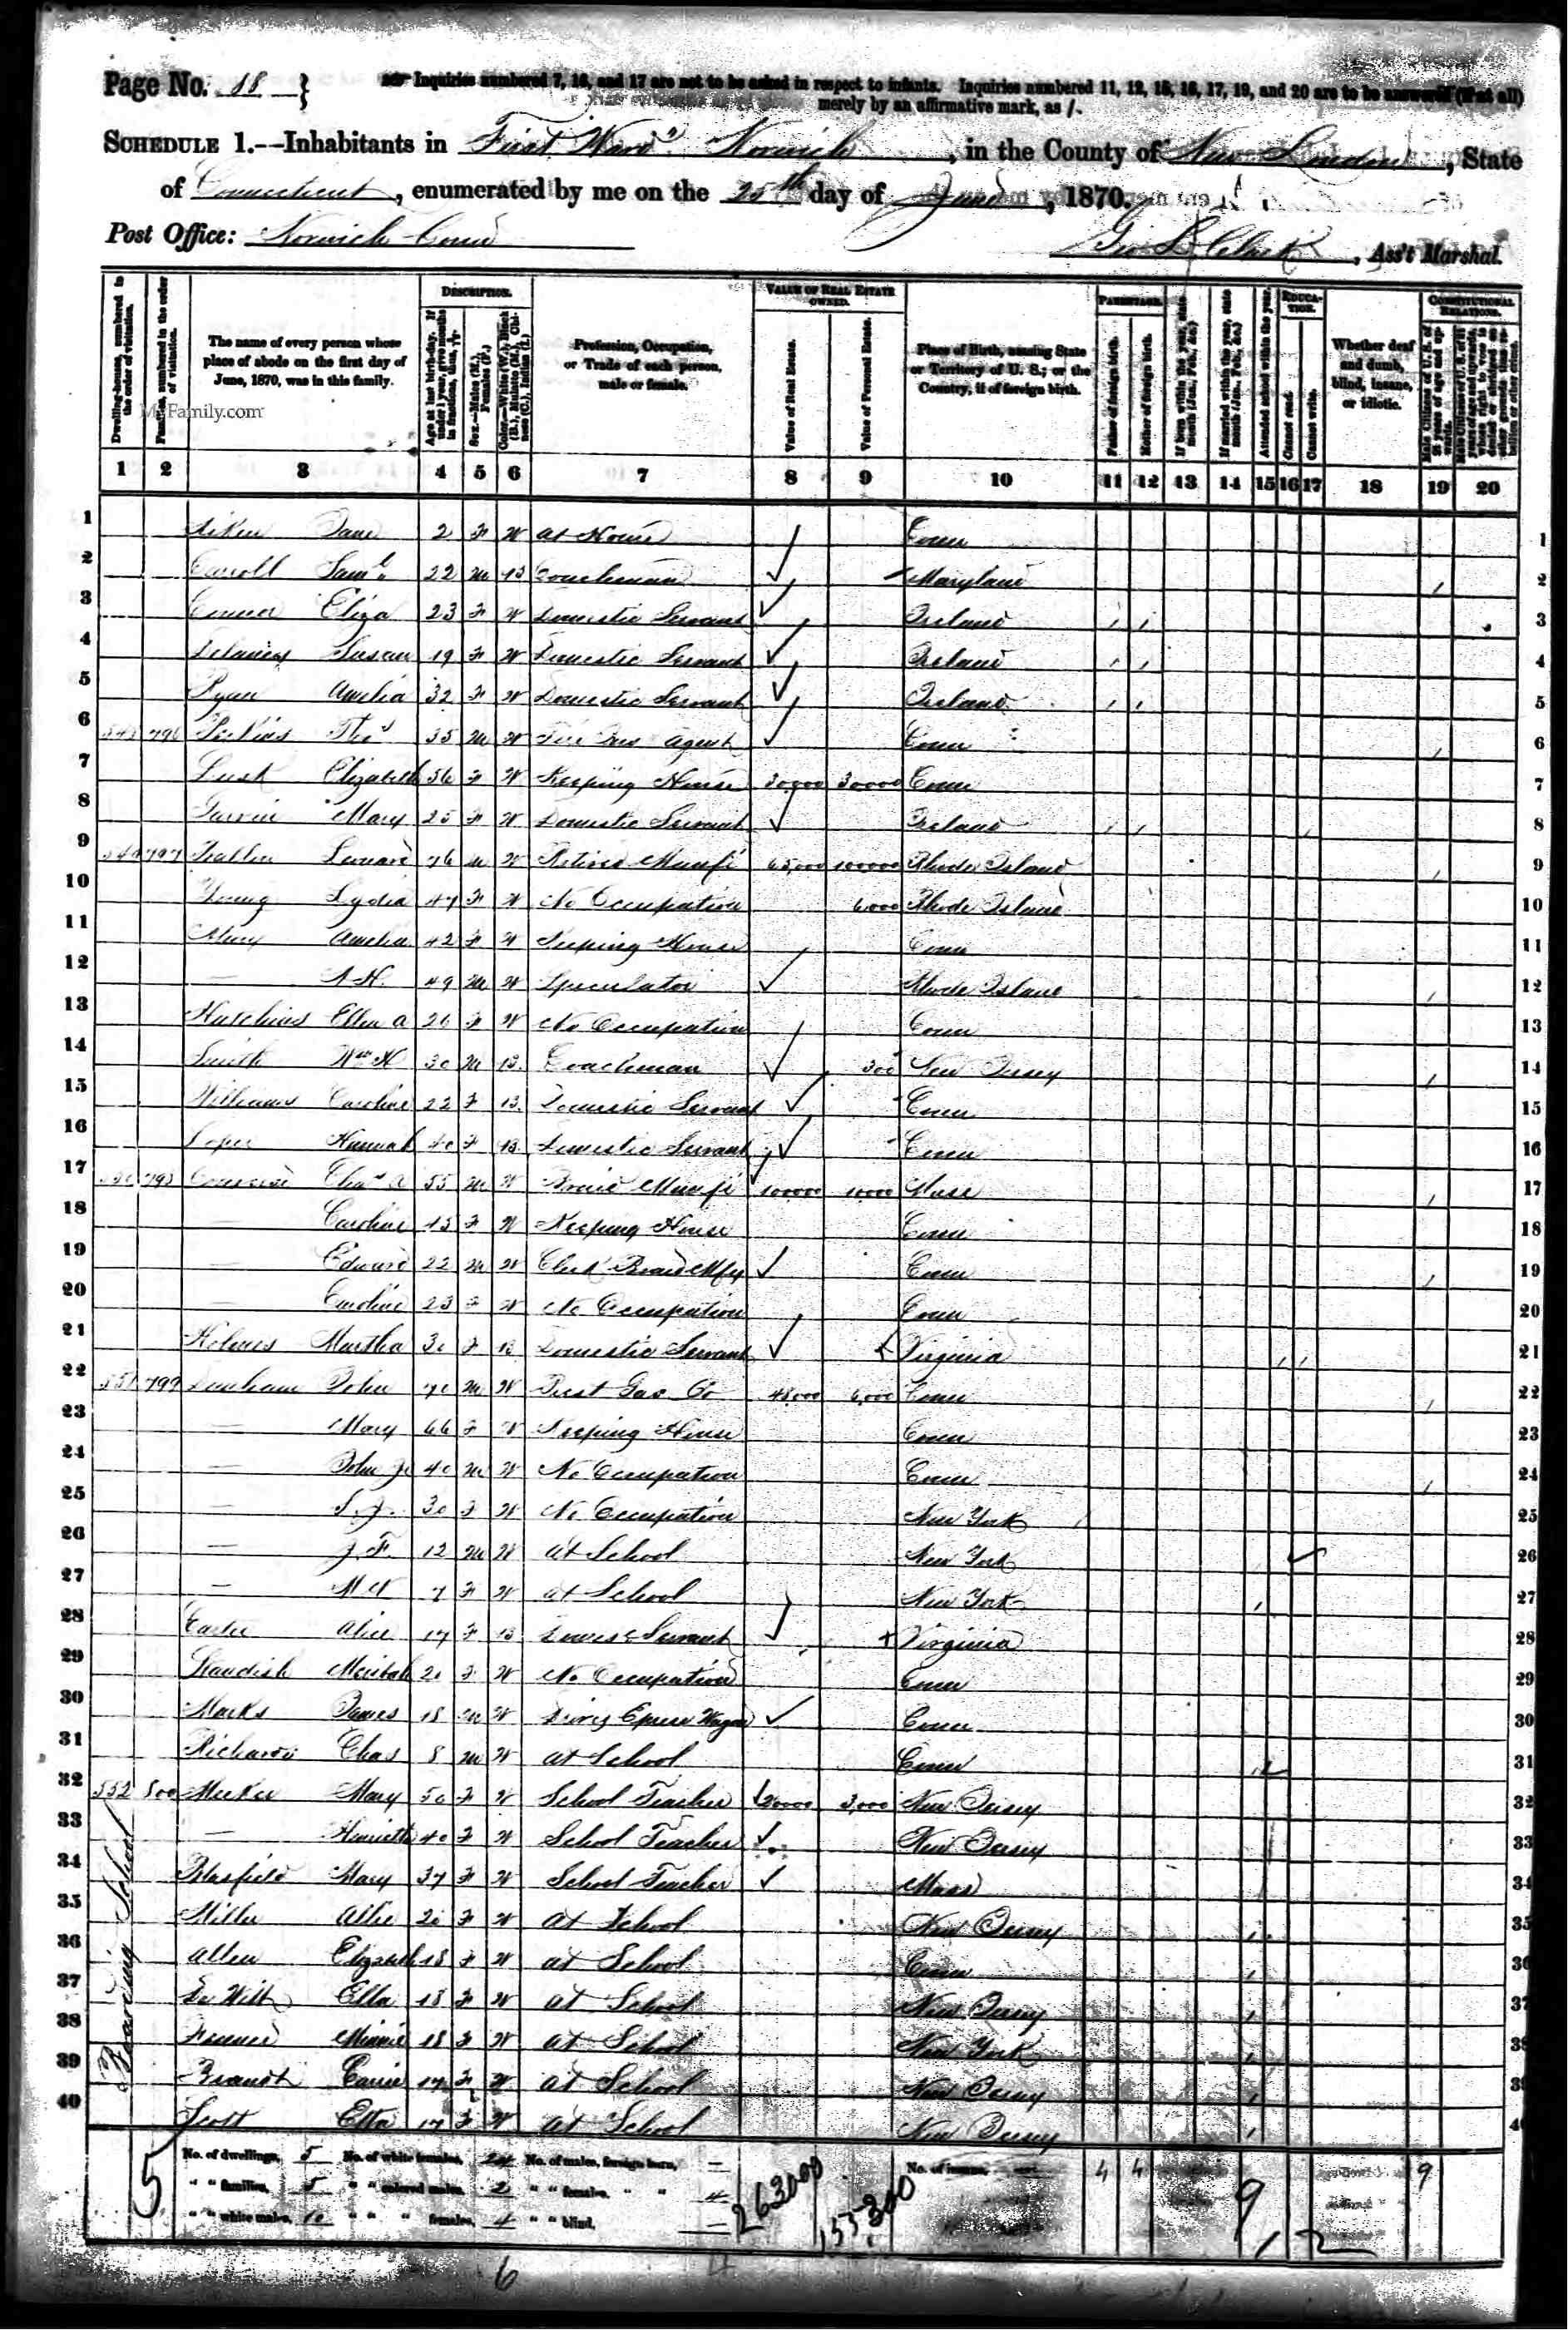 Page No. 18 }
Inquiries numbered 7, 16, and 17 are not to be asked in respect to infants. Inquiries numbered 11, 12, 15, 16, 17, 19, and 20 are to be answered (if at all)
merely by an affirmative mark, as /.
SCHEDULE 1.--Inhabitants in First Ward Norwich, in the County of New London, State
of Connecticut, enumerated by me on the 25th day of June, 1870.
Post Office: Norwich Conn
Geo L Clark, Ass't Marshal.
Dwelling-houses, numbered in the order of visitation.
Families, numbered in the order of visitation.
The name of every person whose place of abode on the first day of June, 1870, was in this family.
DESCRIPTION.
Profession, Occupation, or Trade of each person, male or female.
VALUE OF REAL ESTATE OWNED.
Value of Real Estate.
Value of Personal Estate.
Place of Birth, naming State or Territory of U. S.; or the Country, if of foreign birth.
PARENTAGE.
Father of foreign birth.
Mother of foreign birth.
Attended school within the year.
EDUCATION.
Cannot read.
Cannot write.
Whether deaf and dumb, blind, insane, or idiotic.
CONSTITUTIONAL RELATIONS.
MyFamily.com
1 2 3 4 5 6 7 8 9 10 11 12 13 14 15 16 17 18 19 20
1 Aiken Jane 2 F W At Home Conn 1
2 Carroll Saml. 22 M B Coachman Maryland 2
3 Eliza 23 F W Domestic Servant Ireland 3
4 Susan 19 F W Domestic Servant Ireland 4
5 Ryan Amelia 32 F W Domestic Servant Ireland 5
6 Perkins Thos 35 M W Fire Ins Agent Conn 6
7 Lusk Elizabeth 56 F W Keeping House 30,000 30000 Conn 7
8 Mary 25 F W Domestic Servant Ireland 8
9 549 797 76 M W Retired Manf 65,000 100000 Rhode Island 9
10 Young Lydia 47 F W No Occupation 6000 Rhode Island 10
11 Amelia 42 F W Keeping House Conn 11
12 — A H. 49 M W Speculator Rhode Island 12
13 Hutchins Ellen A 26 F W No Occupation Conn 13
14 Smith Wm H 30 M B. Coachman 300 New Jersey 14
15 Williams Caroline 22 F B. Domestic Servant Conn 15
16 Hannah 40 F B Domestic Servant Conn 16
17 550 798 Converse Chas A 55 M W Manf 100000 10000 Mass 17
18 — Caroline 45 F W Keeping House Conn 18
19 — Edward 22 M W Clerk Mfy Conn 19
20 — Caroline 23 F W No Occupation Conn 20
21 Holmes Martha 30 F B Domestic Servant Virginia 21
22 551 799 Dunham John 70 M W Prest Gas Co 48,000 6,000 Conn 22
23 — Mary 66 F W Keeping House Conn 23
24 — John Jr 40 M W No Occupation Conn 24
25 — S. J. 30 F W No Occupation New York 25
26 — J. F. 12 M W At School New York 26
27 — M W 7 F W At School New York 27
28 Carter Alice 17 F B Domes Servant Virginia 28
29 Standish 20 F W No Occupation Conn 29
30 Marks James 18 M W Wagon Conn 30
31 Richards Chas 8 M W At School Conn 31
32 552 800 Meeker Mary 50 F W School Teacher 20000 3,000 New Jersey 32
33 — Henrietta 40 F W School Teacher New Jersey 33
34 Mary 37 F W School Teacher Mass 34
35 Miller Allie 20 F W At School New Jersey 35
36 Allen Elizabeth 18 F W At School Conn 36
37 De Witt Ella 18 F W At School New Jersey 37
38 Minnie 18 F W At School New York 38
39 Brandt Carrie 17 F W At School New Jersey 39
40 Scott Etta 17 F W At School New Jersey 40
Boarding School
No. of dwellings, 5 No. of white females, 24 No. of males, foreign born, —
" " families, 5 " " colored males, 2 " " females, " " 4
" " white males, 10 " " " females, 4 " " blind, —
No. of insane, —
5
263000
155300
4 4 9 1 2 9
6